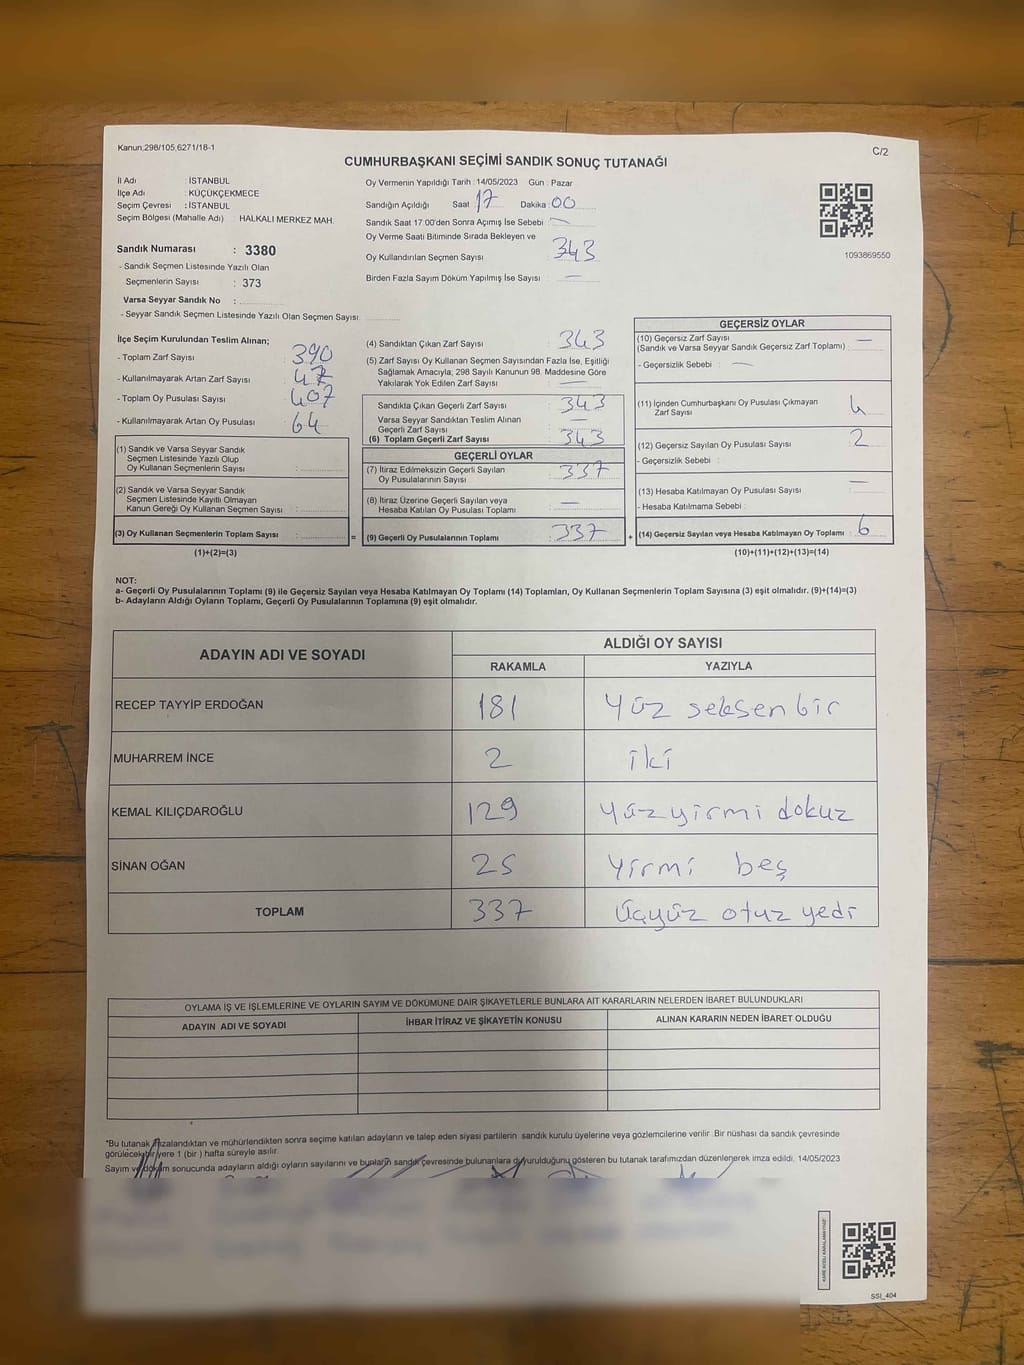 Kanun;298/105,6271/18-1
C/2
CUMHURBAŞKANI SEÇİMİ SANDIK SONUÇ TUTANAĞI
İl Adı : İSTANBUL
İlçe Adı : KÜÇÜKÇEKMECE
Seçim Çevresi : İSTANBUL
Seçim Bölgesi (Mahalle Adı) : HALKALI MERKEZ MAH.
Sandık Numarası : 3380
- Sandık Seçmen Listesinde Yazılı Olan
Seçmenlerin Sayısı : 373
Varsa Seyyar Sandık No :
- Seyyar Sandık Seçmen Listesinde Yazılı Olan Seçmen Sayısı
Oy Vermenin Yapıldığı Tarih : 14/05/2023 Gün : Pazar
Sandığın Açıldığı Saat 17 Dakika : 00
Sandık Saat 17:00'den Sonra Açılmış İse Sebebi —
Oy Verme Saati Bitiminde Sırada Bekleyen ve
Oy Kullandırılan Seçmen Sayısı 343
Birden Fazla Sayım Döküm Yapılmış İse Sayısı —
1093869550
İlçe Seçim Kurulundan Teslim Alınan;
- Toplam Zarf Sayısı : 390
- Kullanılmayarak Artan Zarf Sayısı : 47
- Toplam Oy Pusulası Sayısı : 407
- Kullanılmayarak Artan Oy Pusulası : 64
(1) Sandık ve Varsa Seyyar Sandık
Seçmen Listesinde Yazılı Olup
Oy Kullanan Seçmenlerin Sayısı :
(2) Sandık ve Varsa Seyyar Sandık
Seçmen Listesinde Kayıtlı Olmayan
Kanun Gereği Oy Kullanan Seçmen Sayısı :
(3) Oy Kullanan Seçmenlerin Toplam Sayısı :
(1)+(2)=(3)
(4) Sandıktan Çıkan Zarf Sayısı : 343
(5) Zarf Sayısı Oy Kullanan Seçmen Sayısından Fazla İse, Eşitliği
Sağlamak Amacıyla; 298 Sayılı Kanunun 98. Maddesine Göre
Yakılarak Yok Edilen Zarf Sayısı : —
Sandıkta Çıkan Geçerli Zarf Sayısı : 343
Varsa Seyyar Sandıktan Teslim Alınan
Geçerli Zarf Sayısı : —
(6) Toplam Geçerli Zarf Sayısı : 343
GEÇERLİ OYLAR
(7) İtiraz Edilmeksizin Geçerli Sayılan
Oy Pusulalarının Sayısı : 337
(8) İtiraz Üzerine Geçerli Sayılan veya
Hesaba Katılan Oy Pusulası Toplamı : —
= (9) Geçerli Oy Pusulalarının Toplamı : 337
GEÇERSİZ OYLAR
(10) Geçersiz Zarf Sayısı
(Sandık ve Varsa Seyyar Sandık Geçersiz Zarf Toplamı) : —
- Geçersizlik Sebebi : —
(11) İçinden Cumhurbaşkanı Oy Pusulası Çıkmayan
Zarf Sayısı : 4
(12) Geçersiz Sayılan Oy Pusulası Sayısı : 2
- Geçersizlik Sebebi :
(13) Hesaba Katılmayan Oy Pusulası Sayısı : —
- Hesaba Katılmama Sebebi :
+ (14) Geçersiz Sayılan veya Hesaba Katılmayan Oy Toplamı : 6
(10)+(11)+(12)+(13)=(14)
NOT:
a- Geçerli Oy Pusulalarının Toplamı (9) ile Geçersiz Sayılan veya Hesaba Katılmayan Oy Toplamı (14) Toplamları, Oy Kullanan Seçmenlerin Toplam Sayısına (3) eşit olmalıdır. (9)+(14)=(3)
b- Adayların Aldığı Oyların Toplamı, Geçerli Oy Pusulalarının Toplamına (9) eşit olmalıdır.
ADAYIN ADI VE SOYADI
ALDIĞI OY SAYISI
RAKAMLA YAZIYLA
RECEP TAYYİP ERDOĞAN 181 Yüz seksen bir
MUHARREM İNCE 2 iki
KEMAL KILIÇDAROĞLU 129 yüzyirmi dokuz
SİNAN OĞAN 25 yirmi beş
TOPLAM 337 üçyüz otuz yedi
OYLAMA İŞ VE İŞLEMLERİNE VE OYLARIN SAYIM VE DÖKÜMÜNE DAİR ŞİKAYETLERLE BUNLARA AİT KARARLARIN NELERDEN İBARET BULUNDUKLARI
ADAYIN ADI VE SOYADI İHBAR İTİRAZ VE ŞİKAYETİN KONUSU ALINAN KARARIN NEDEN İBARET OLDUĞU
*Bu tutanak imzalandıktan ve mühürlendikten sonra seçime katılan adayların ve talep eden siyasi partilerin sandık kurulu üyelerine veya gözlemcilerine verilir .Bir nüshası da sandık çevresinde
görülecek bir yere 1 (bir ) hafta süreyle asılır.
Sayım ve döküm sonucunda adayların aldığı oyların sayılarını ve bunların sandık çevresinde bulunanlara duyurulduğunu gösteren bu tutanak tarafımızdan düzenlenerek imza edildi. 14/05/2023
KARE KODU KARALAMAYINIZ!
SSI_404